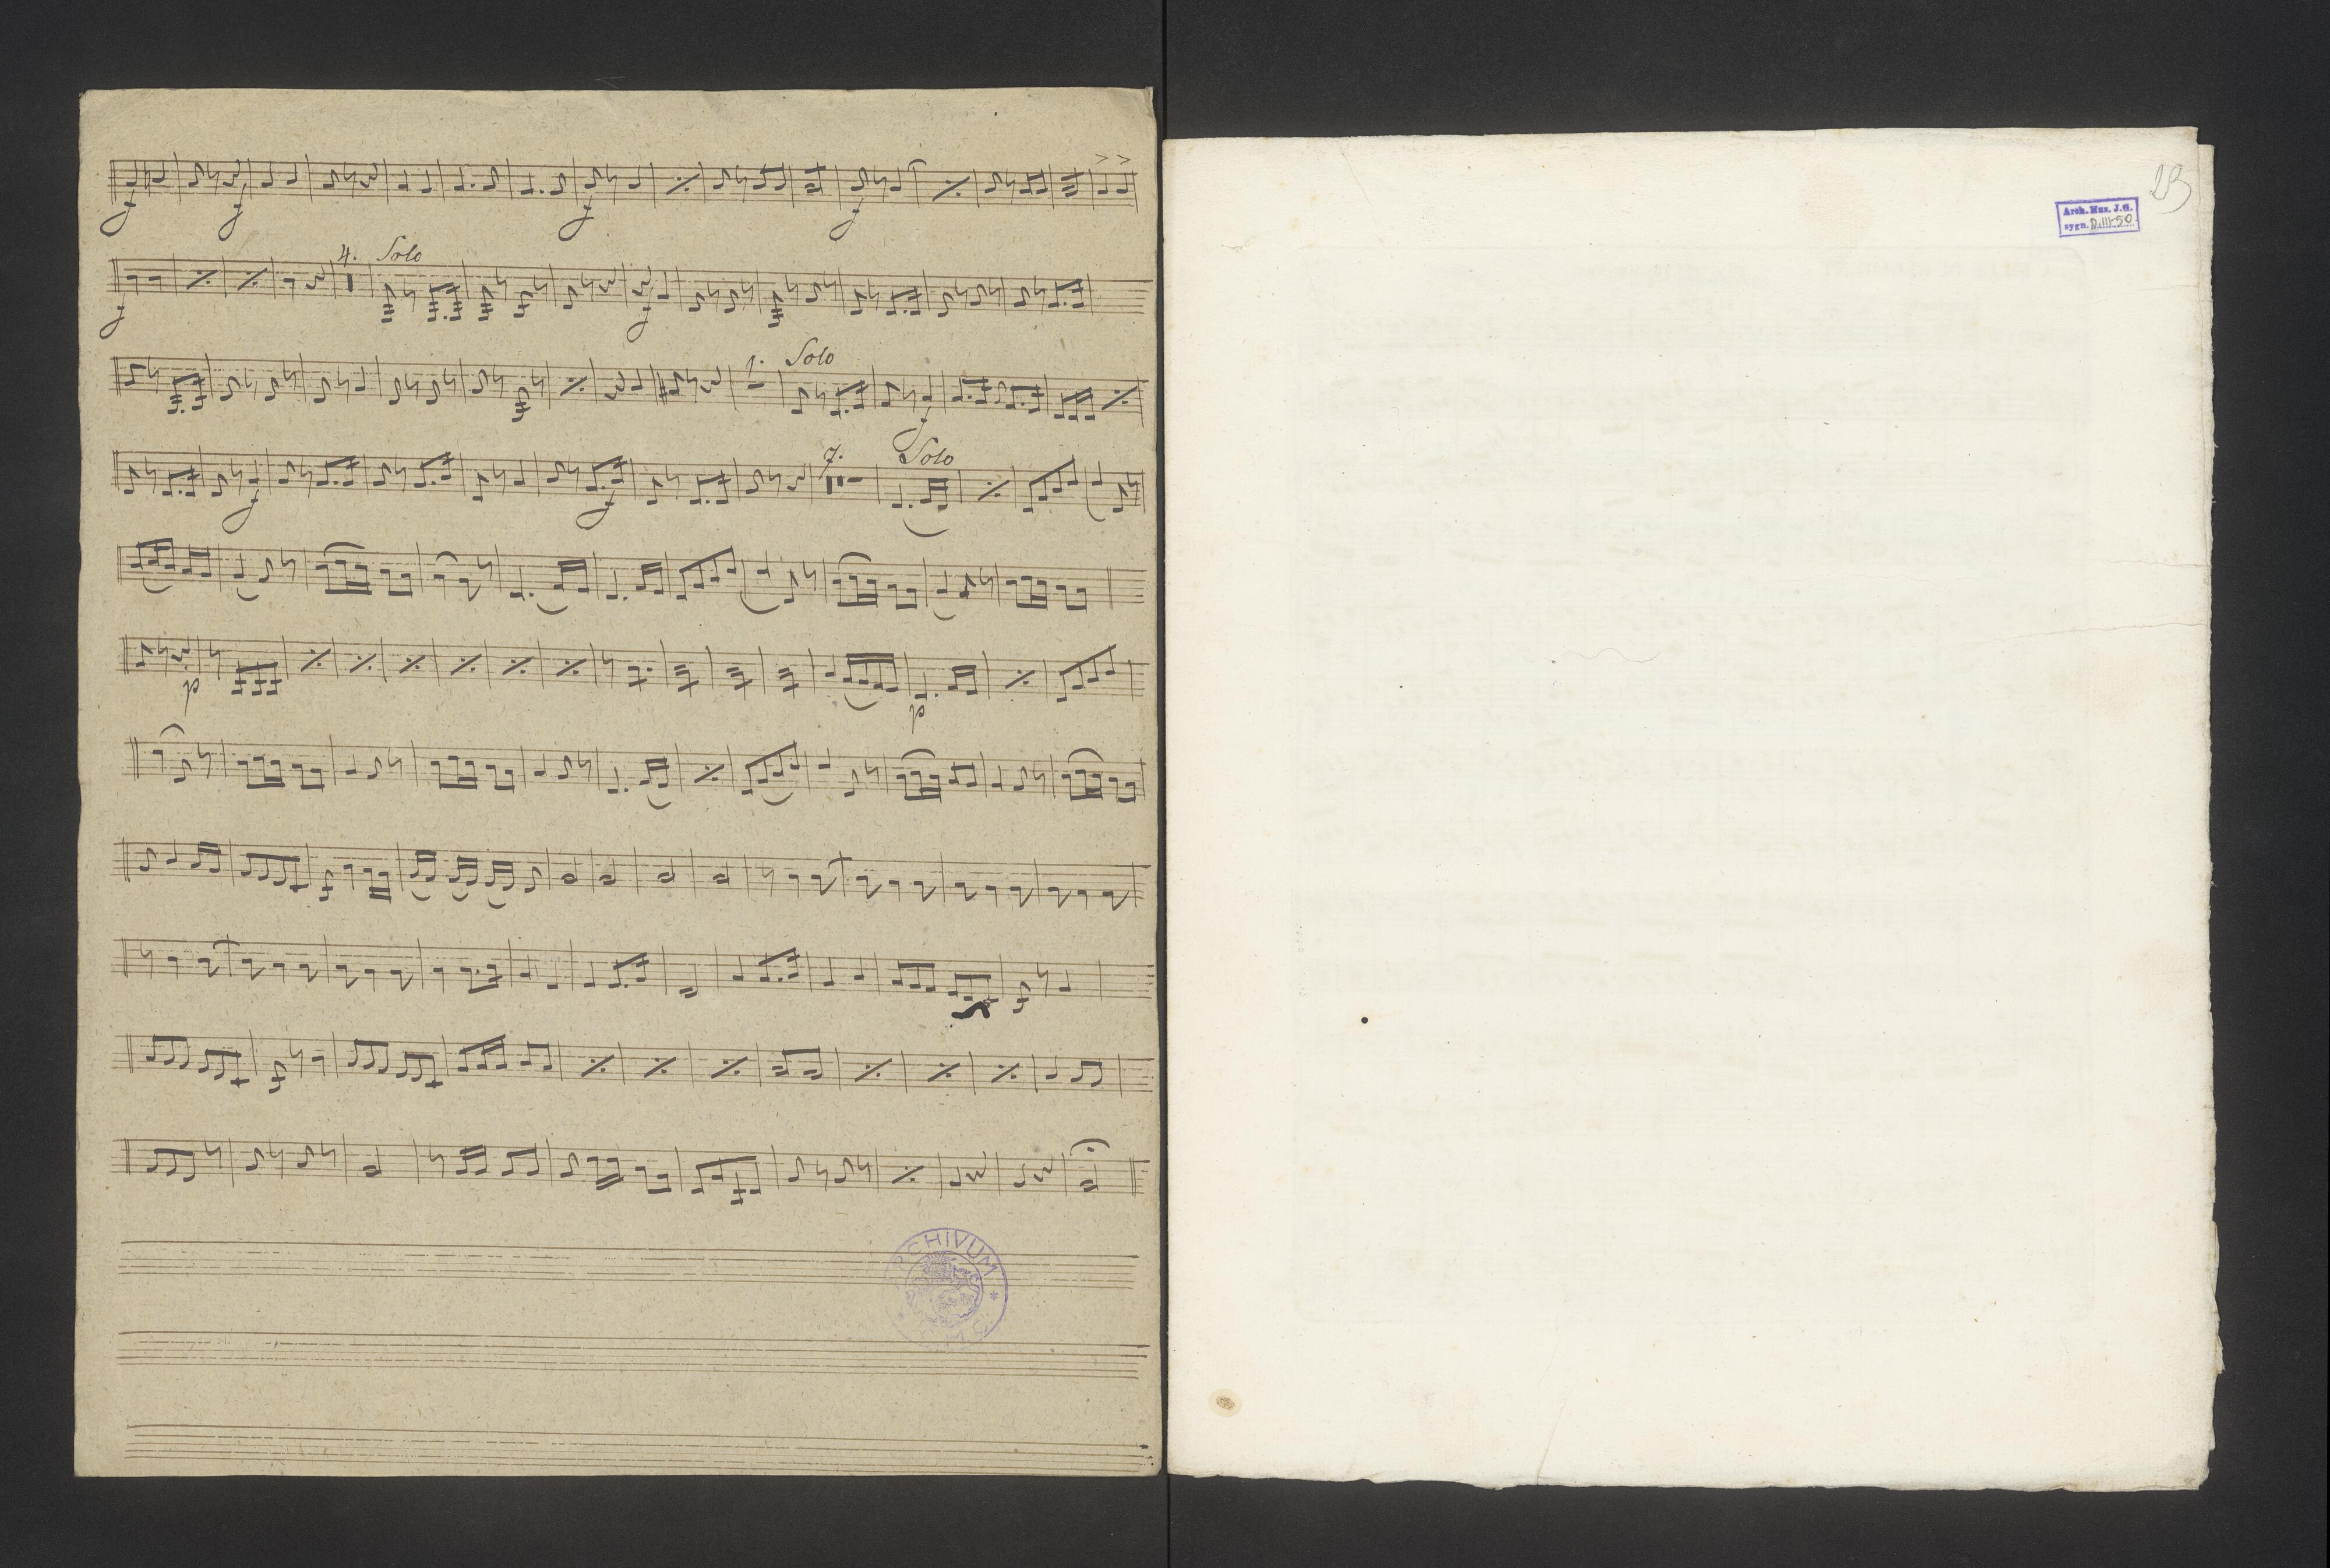 f f f f
4. Solo
f f
1. Solo
f
7. Solo
f f
p p
ARCHIVUM
23
Arch. Muz. J.G.
sygn. D.III-50